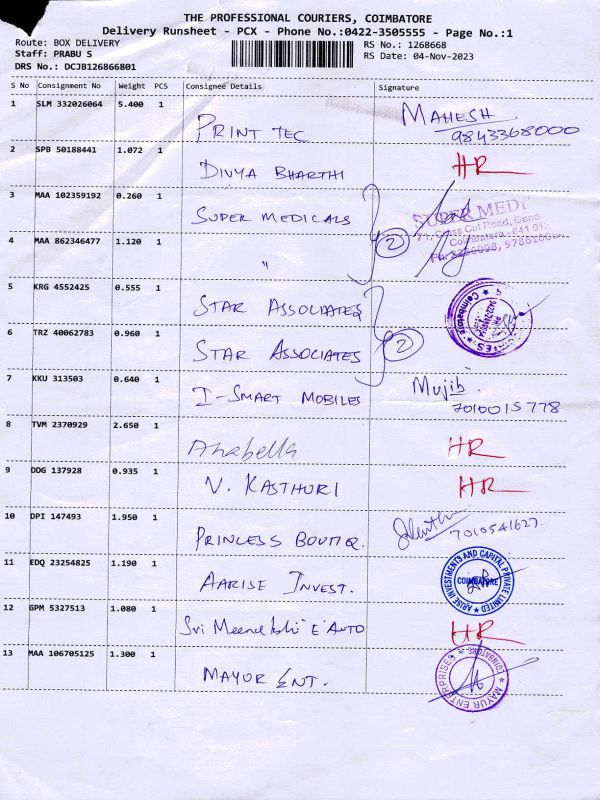 THE PROFESSIONAL COURIERS, COIMBATORE
Delivery Runsheet - PCX - Phone No.:0422-3505555 - Page No.:1
Route: BOX DELIVERY RS No.: 1268668
Staff: PRABU S RS Date: 04-Nov-2023
DRS No.: DCJB126866801
S No Consignment No Weight PCS Consignee Details Signature
1 SLM 332026064 5.400 1 PRINT TEC MAHESH
9843368000
2 SPB 50188441 1.072 1 DIVYA BHARTHI HR
3 MAA 102359192 0.260 1 SUPER MEDICALS
SUPER MEDI
Road,
Coimbatore - 641 012
4 MAA 862346477 1.120 1 " 2
5 KRG 4552425 0.555 1 STAR ASSOCIATES
Coimbatore
6 TRZ 40062783 0.960 1 STAR ASSOCIATES 2
7 KKU 313503 0.640 1 I-SMART MOBILES Mujib
7010015778
8 TVM 2370929 2.650 1 Anabella HR
9 DDG 137928 0.935 1 V. KASTHURI HR
10 DPI 147493 1.950 1 PRINCESS BOUTIQ. 7010541627.
11 EDQ 23254825 1.190 1 AARISE INVEST.
ARISE INVESTMENTS AND CAPITAL PRIVATE LIMITED
COIMBATORE
12 GPM 5327513 1.080 1 Sri Meenakshi E AUTO HR
13 MAA 106705125 1.300 1 MAYUR ENT.
MAYUR ENTERPRISES
COIMBATORE